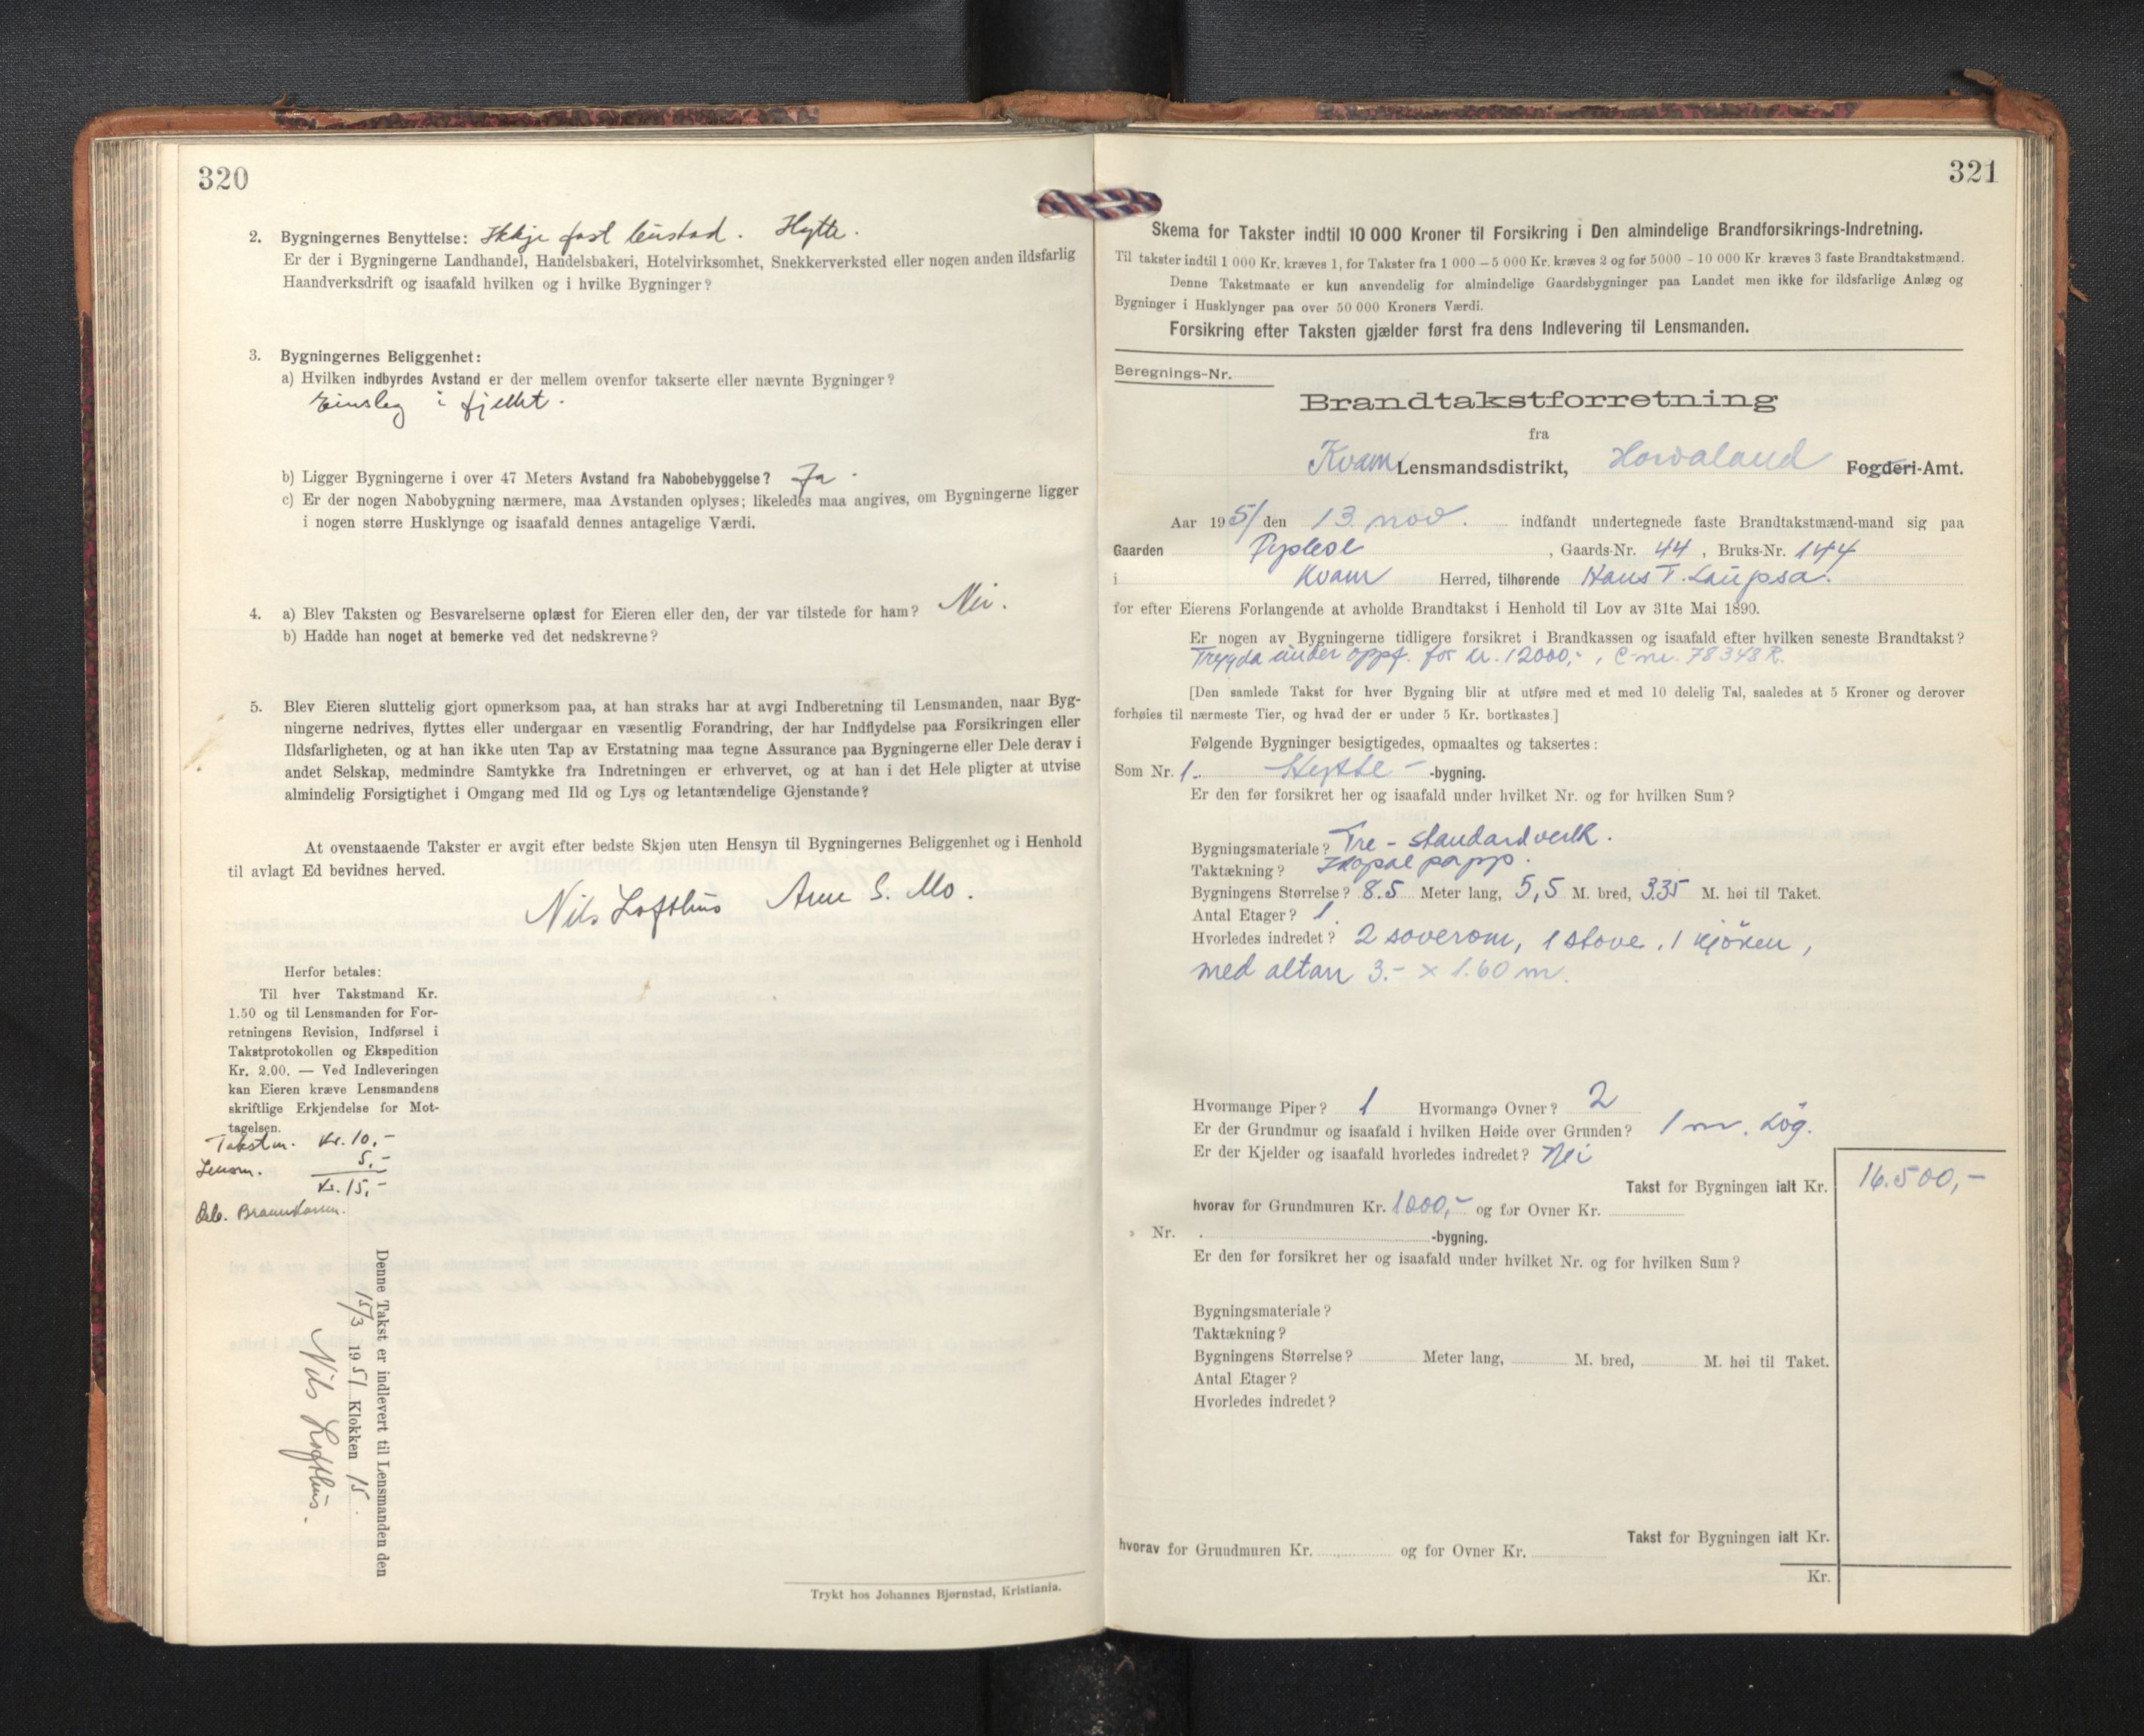 320
2. Bygningernes Benyttelse: Ikkje fast bustad. Hytte.
Er der i Bygningerne Landhandel, Handelsbakeri, Hotelvirksomhet, Snekkerverksted eller nogen anden ildsfarlig
Haandverksdrift og isaafald hvilken og i hvilke Bygninger?
3. Bygningernes Beliggenhet:
a) Hvilken indbyrdes Avstand er der mellem ovenfor takserte eller nævnte Bygninger?
Einsleg i fjellet.
b) Ligger Bygningerne i over 47 Meters Avstand fra Nabobebyggelse? Ja.
c) Er der nogen Nabobygning nærmere, maa Avstanden oplyses; likeledes maa angives, om Bygningerne ligger
i nogen større Husklynge og isaafald dennes antagelige Værdi.
4. a) Blev Taksten og Besvarelserne oplæst for Eieren eller den, der var tilstede for ham? Nei.
b) Hadde han noget at bemerke ved det nedskrevne?
5. Blev Eieren sluttelig gjort opmerksom paa, at han straks har at avgi Indberetning til Lensmanden, naar Byg-
ningerne nedrives, flyttes eller undergaar en væsentlig Forandring, der har Indflydelse paa Forsikringen eller
Ildsfarligheten, og at han ikke uten Tap av Erstatning maa tegne Assurance paa Bygningerne eller Dele derav i
andet Selskap, medmindre Samtykke fra Indretningen er erhvervet, og at han i det Hele pligter at utvise
almindelig Forsigtighet i Omgang med Ild og Lys og letantændelige Gjenstande?
At ovenstaaende Takster er avgit efter bedste Skjøn uten Hensyn til Bygningernes Beliggenhet og i Henhold
til avlagt Ed bevidnes herved.
Nils Lofthus Arne S. Mo.
Herfor betales:
Til hver Takstmand Kr.
1.50 og til Lensmanden for For-
retningens Revision, Indførsel i
Takstprotokollen og Ekspedition
Kr. 2.00. — Ved Indleveringen
kan Eieren kræve Lensmandens
skriftlige Erkjendelse for Mot-
tagelsen.
Takstm. Kr. 10,-
Lensm. 5,-
Kr. 15,-
Denne Takst er indlevert til Lensmanden den
15/3 1951 Klokken 15.
Nils Lofthus.
Trykt hos Johannes Bjørnstad, Kristiania.
321
Skema for Takster indtil 10 000 Kroner til Forsikring i Den almindelige Brandforsikrings-Indretning.
Til takster indtil 1 000 Kr. kræves 1, for Takster fra 1 000 — 5 000 Kr. kræves 2 og for 5000 - 10 000 Kr kræves 3 faste Brandtakstmænd.
Denne Takstmaate er kun anvendelig for almindelige Gaardsbygninger paa Landet men ikke for ildsfarlige Anlæg og
Bygninger i Husklynger paa over 50 000 Kroners Værdi.
Forsikring efter Taksten gjælder først fra dens Indlevering til Lensmanden.
Beregnings-Nr.
Brandtakstforretning
fra
Kvam Lensmandsdistrikt, Hordaland Fogderi-Amt.
Aar 1951 den 13. nov. indfandt undertegnede faste Brandtakstmænd-mand sig paa
Gaarden , Gaards-Nr. 44 , Bruks-Nr. 144
i Kvam Herred, tilhørende Hans T. Laupsa.
for efter Eierens Forlangende at avholde Brandtakst i Henhold til Lov av 31te Mai 1890.
Er nogen av Bygningerne tidligere forsikret i Brandkassen og isaafald efter hvilken seneste Brandtakst?
Trygda under oppf. for kr. 12000,-, C-nr. 78348 R.
[Den samlede Takst for hver Bygning blir at utføre med et med 10 delelig Tal, saaledes at 5 Kroner og derover
forhøies til nærmeste Tier, og hvad der er under 5 Kr. bortkastes.]
Følgende Bygninger besigtigedes, opmaaltes og taksertes:
Som Nr. 1. Hytte- -bygning.
Er den før forsikret her og isaafald under hvilket Nr. og for hvilken Sum?
Bygningsmateriale? Tre - standardverk.
Taktækning? papp.
Bygningens Størrelse? 8.5 Meter lang, 5,5 M. bred, 3.35 M. høi til Taket.
Antal Etager? 1.
Hvorledes indredet? 2 soverom, 1 stove, 1 kjöken,
med altan 3.- x 1.60 m.
Hvormange Piper? 1 Hvormange Ovner? 2
Er der Grundmur og isaafald i hvilken Høide over Grunden? 1 m. høg.
Er der Kjelder og isaafald hvorledes indredet? Nei
Takst for Bygningen ialt Kr. 16.500,-
hvorav for Grundmuren Kr. 1000,- og for Ovner Kr.
» Nr. -bygning.
Er den før forsikret her og isaafald under hvilket Nr. og for hvilken Sum?
Bygningsmateriale?
Taktækning?
Bygningens Størrelse? Meter lang, M. bred, M. høi til Taket.
Antal Etager?
Hvorledes indredet?
Takst for Bygningen ialt Kr.
hvorav for Grundmuren Kr. og for Ovner Kr.
Kr.